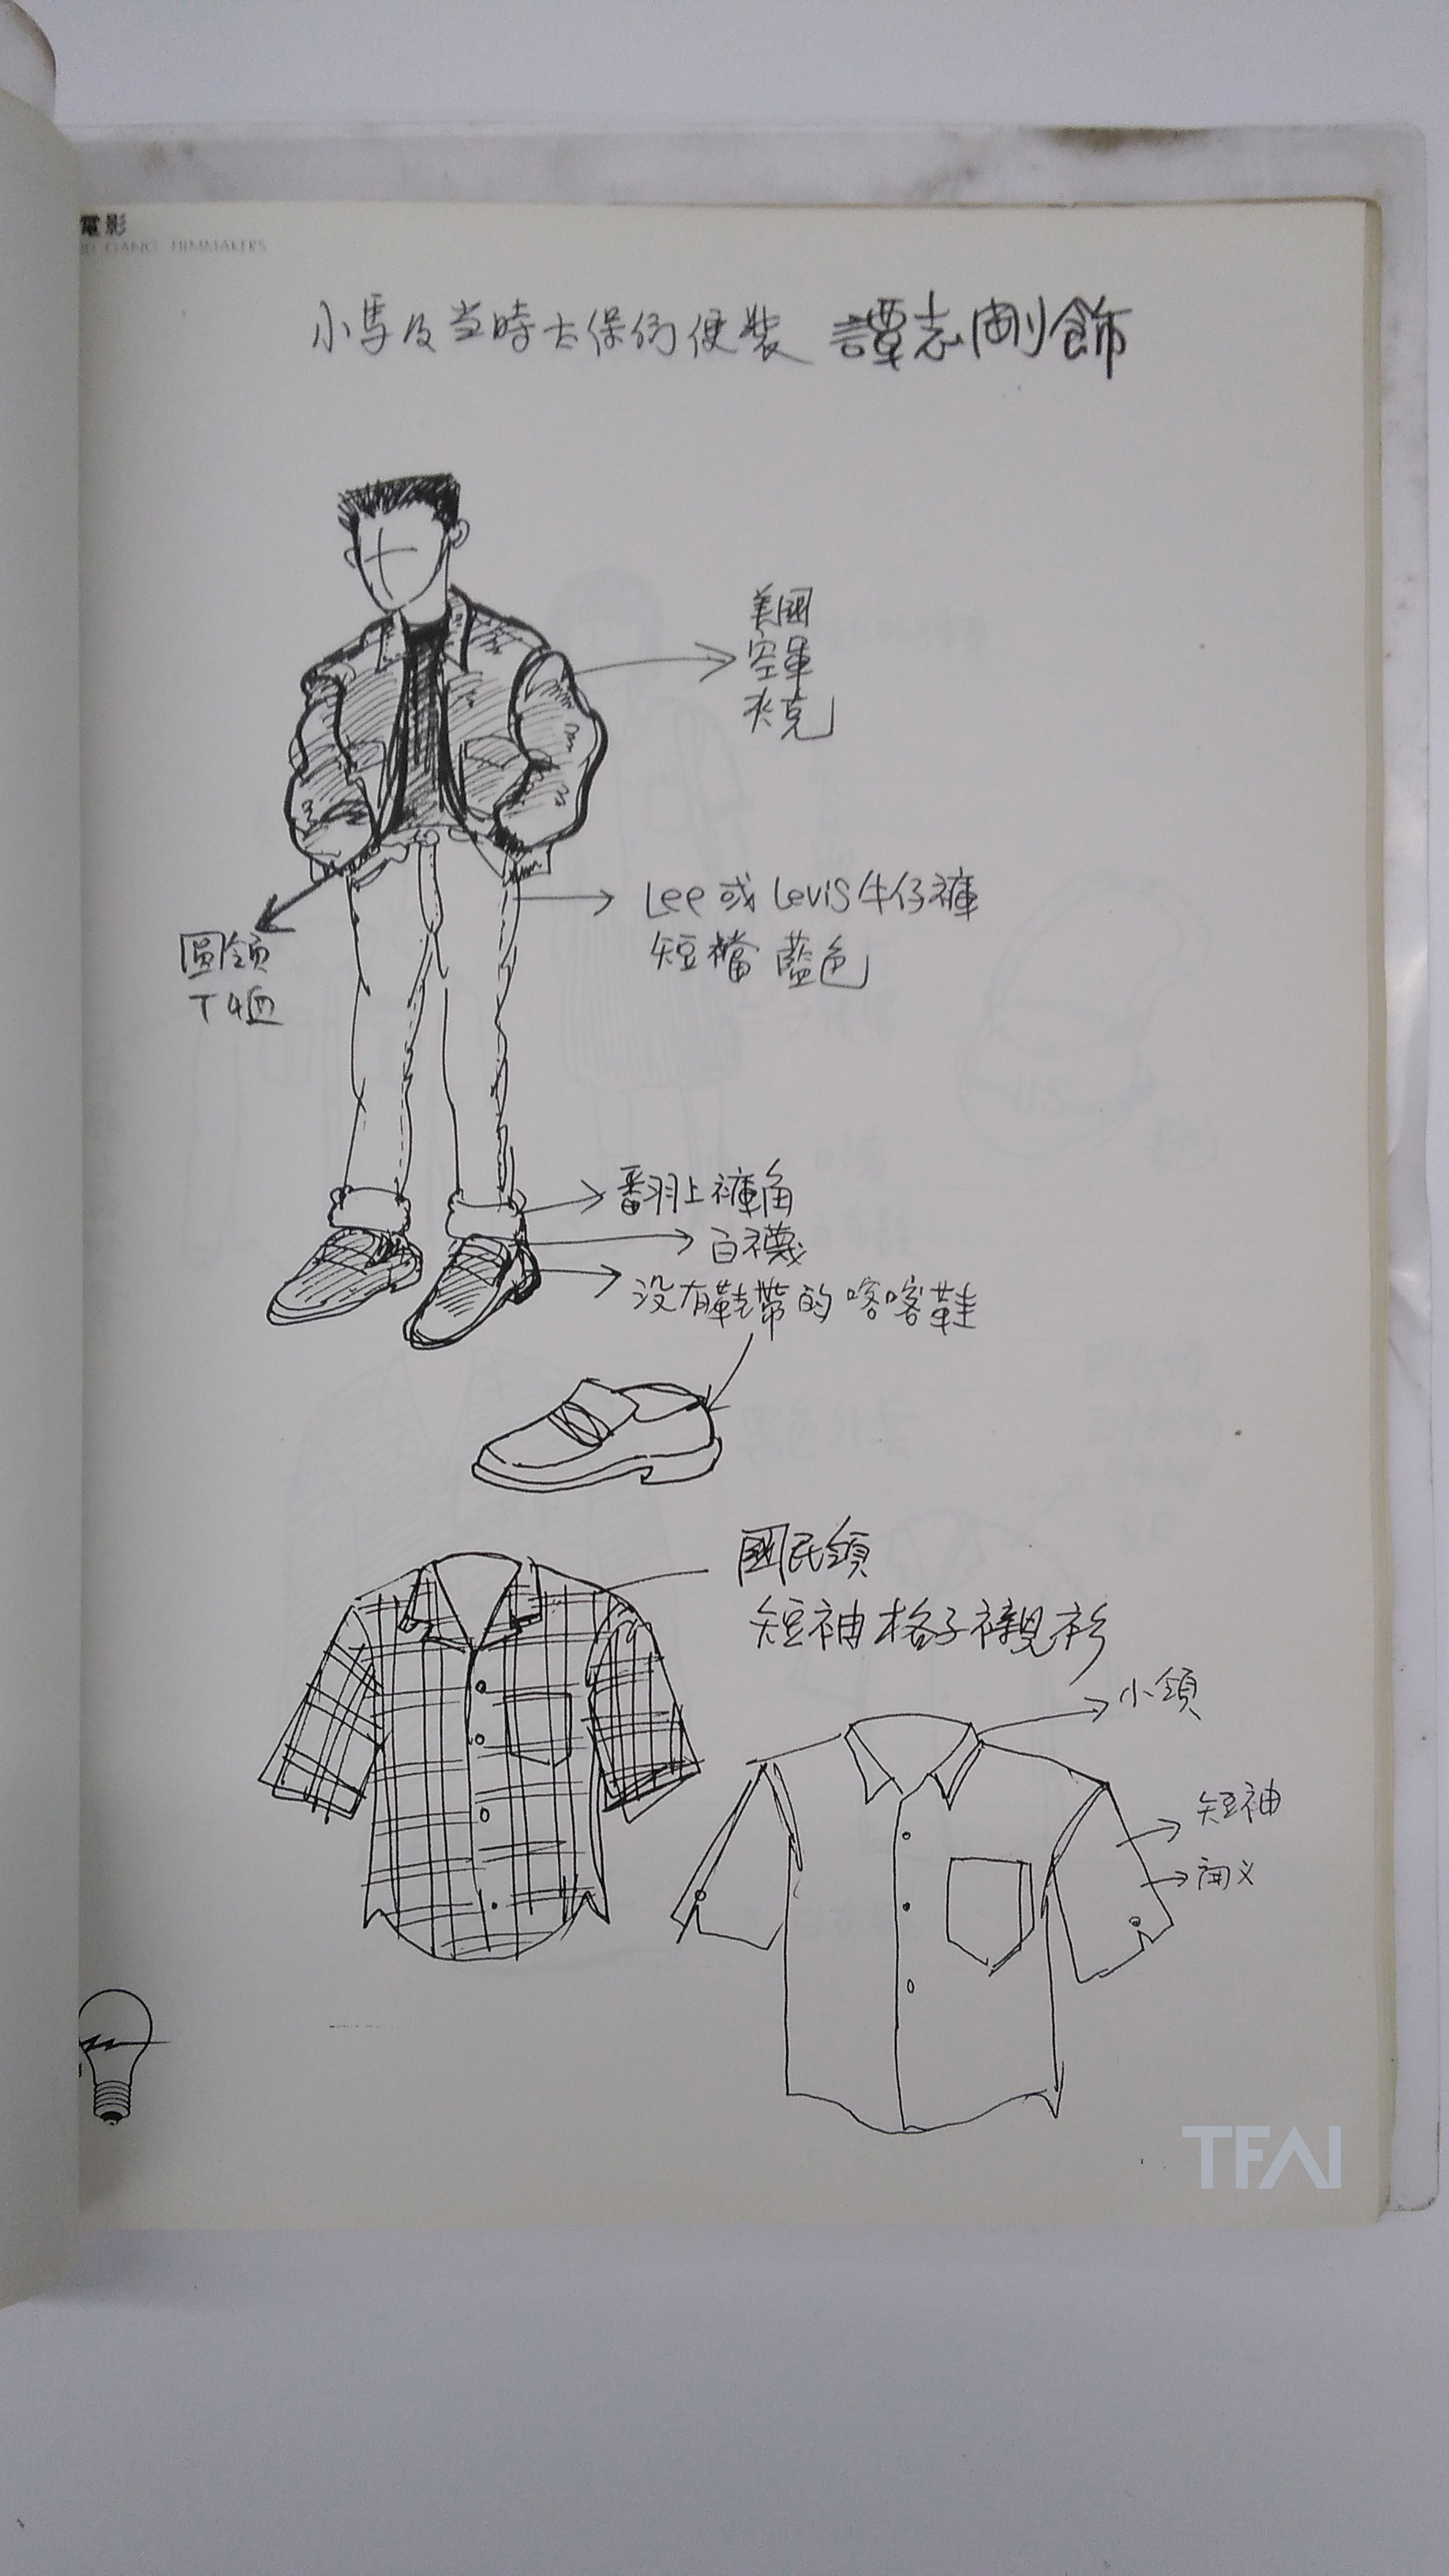 電影
GANG FILMMAKERS
小馬及当時太保們便裝 譚志剛飾
美國
空軍
夾克
Lee 或 Levis 牛仔褲
短襠 藍色
圓領
T恤
翻上褲角
白襪
沒有鞋帶的喀喀鞋
國民領
短袖格子襯衫
小領
短袖
開叉
TFAI